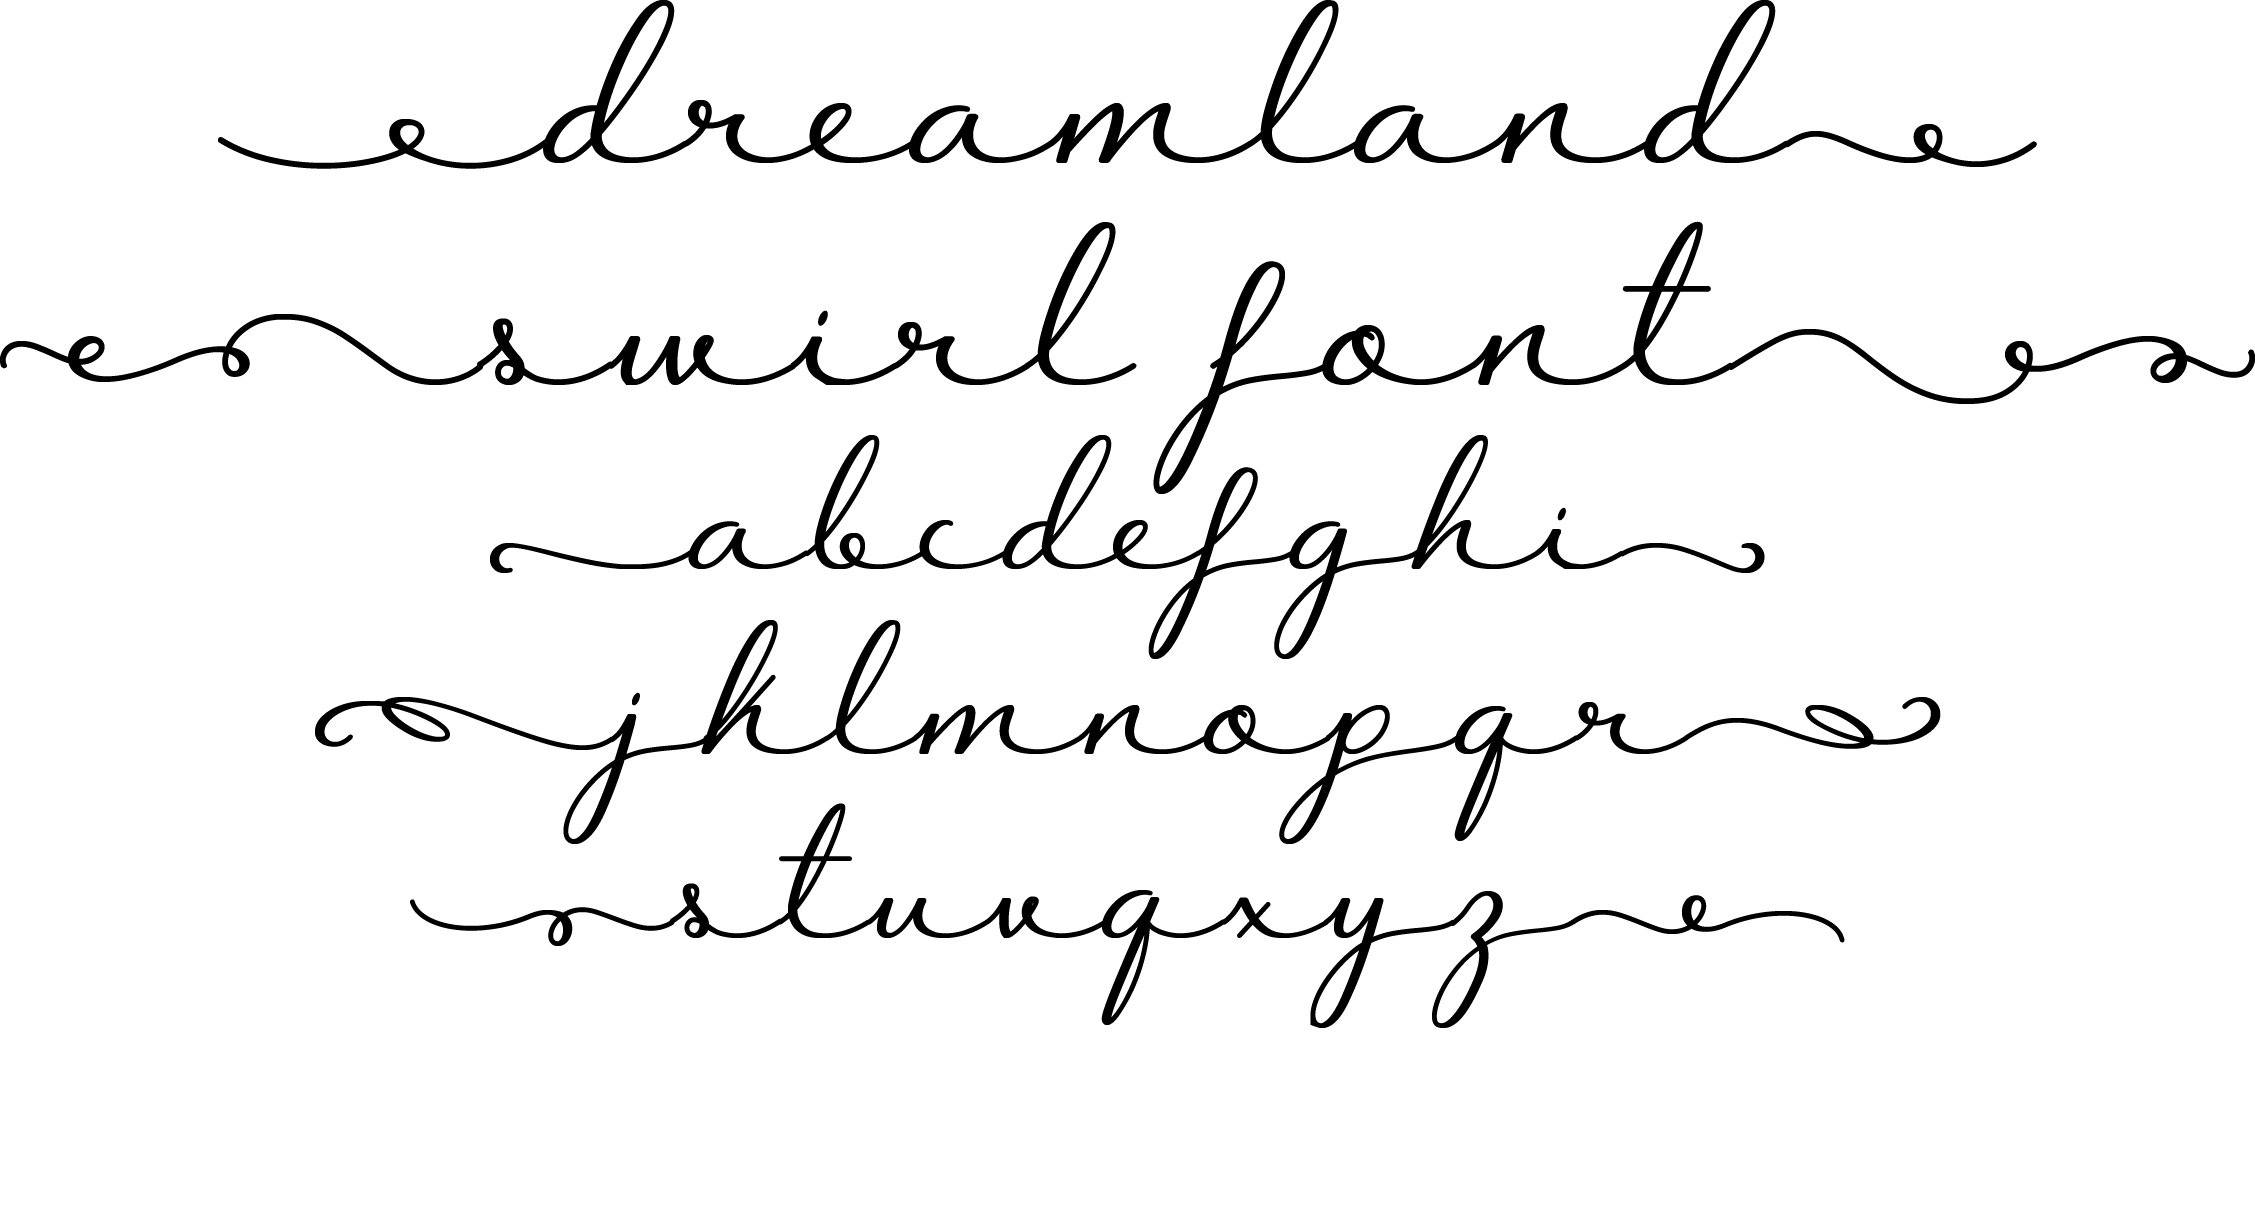 dreamland
swirl font
abcdefghi
jklmnopqr
stuvqxyz